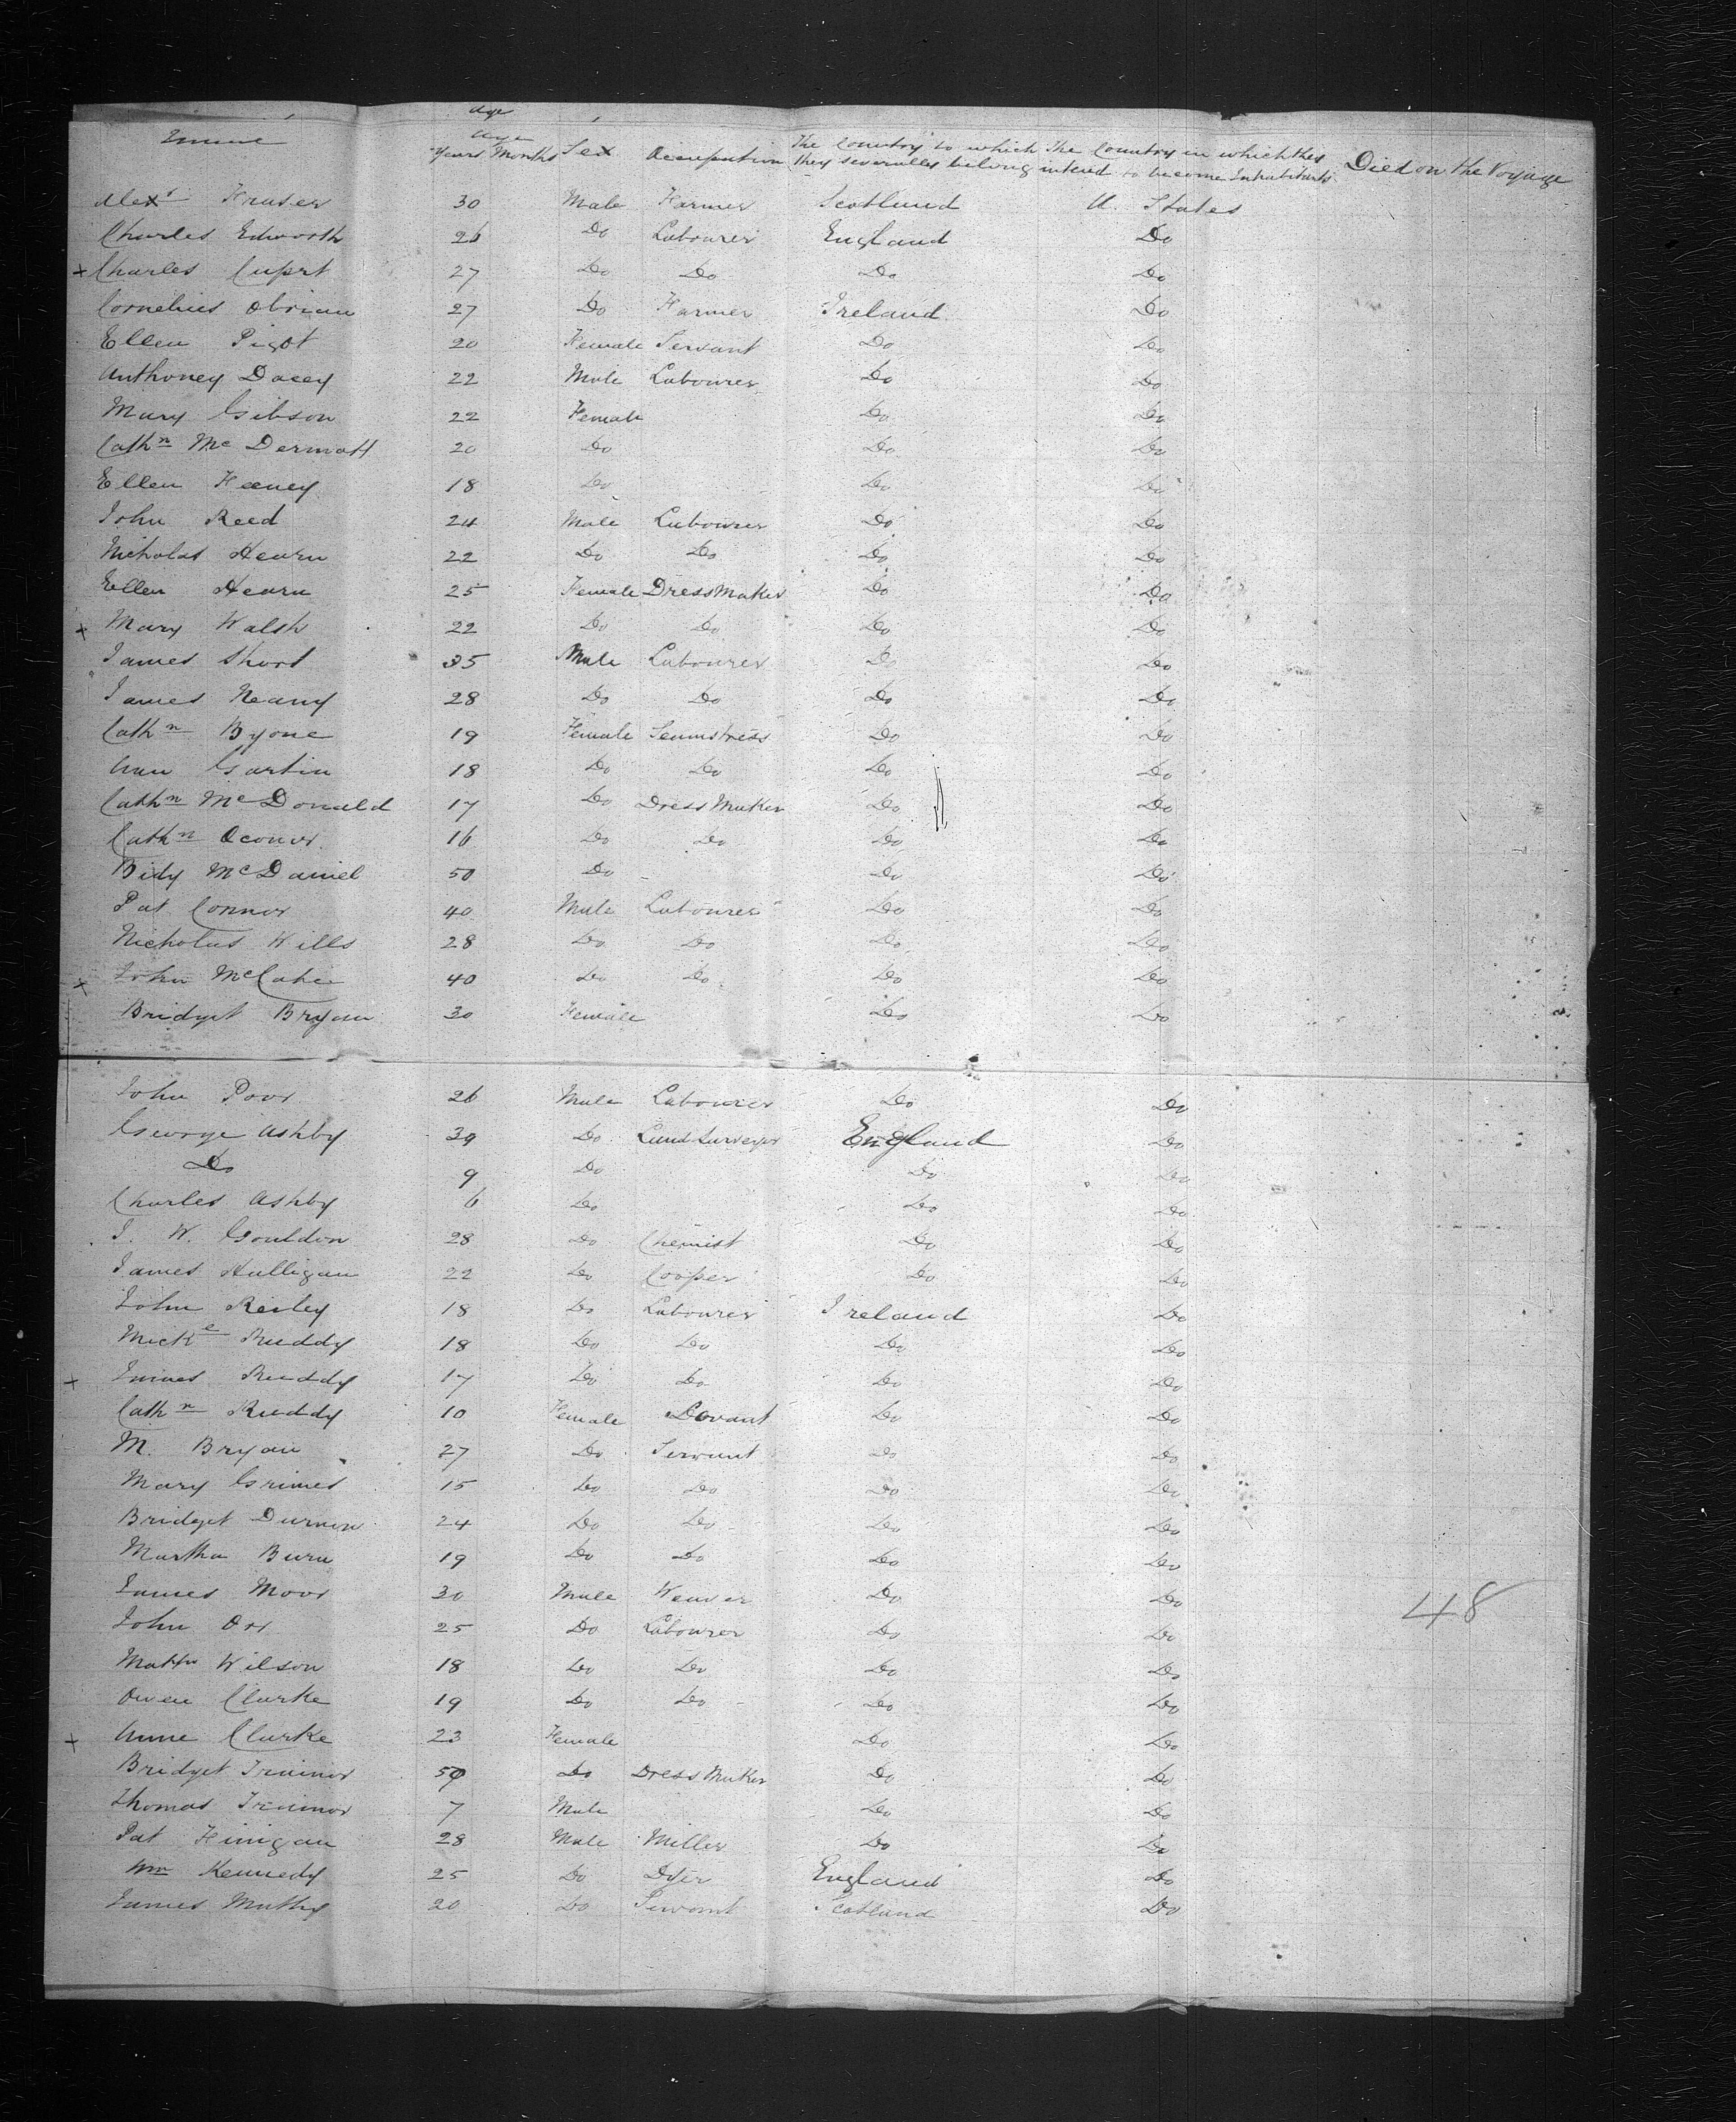 Name Age Age Years Months Sex Occupation The Country to which they severally belong The Country in which they intend to become Inhabitants Died on the Voyage
Alexr Fraser 30 Male Farmer Scotland U. States
Charles Edworth 26 Do Labourer England Do
+ Charles 27 Do Do Do Do
Cornelius Obrian 27 Do Farmer Ireland Do
Ellen Pigot 20 Female Servant Do Do
Anthoney Dacey 22 Male Labourer Do Do
Mary Gibson 22 Female Do Do
Cathn McDermott 20 Do Do Do
Ellen Feeney 18 Do Do Do
John Reed 24 Male Labourer Do Do
Nicholas Hearn 22 Do Do Do Do
Ellen Hearn 25 Female Dress Maker Do Do
+ Mary Walsh 22 Do Do Do Do
James Short 35 Male Labourer Do Do
James Neany 28 Do Do Do Do
Cathn Byone 19 Female Seamstress Do Do
Ann Gartin 18 Do Do Do Do
Cathn McDonald 17 Do Dress Maker Do Do
Cathn Oconor 16 Do Do Do Do
Bidy McDaniel 50 Do Do Do
Pat Connor 40 Male Labourer Do Do
Nicholas Wills 28 Do Do Do Do
+ John McCabe 40 Do Do Do Do
Bridget Bryan 30 Female Do Do
John Poor 26 Male Labourer Do Do
George Ashby 39 Do Land Surveyor England Do
Do 9 Do Do Do
Charles Ashby 6 Do Do Do
J. W. Gouldon 28 Do Chemist Do Do
James Hulligan 22 Do Cooper Do Do
John Reiley 18 Do Labourer Ireland Do
Micke Ruddy 18 Do Do Do Do
+ James Ruddy 17 Do Do Do Do
Cathn Ruddy 10 Female Do
M. Bryan 27 Do Servant Do Do
Mary Grimes 15 Do Do Do Do
Bridget Durnin 24 Do Do Do Do
Martha Burn 19 Do Do Do Do
James Moor 30 Male Weaver Do Do
48
John Orr 25 Do Labourer Do Do
Matthw Wilson 18 Do Do Do Do
Owen Clarke 19 Do Do Do Do
+ Anne Clarke 23 Female Do Do
Bridget Trainor Do Dress Maker Do Do
Thomas Trainor 7 Male Do Do
Pat Finigan 28 Male Miller Do Do
Wm Kennedy 25 Do Dyer England Do
James 20 Do Servant Scotland Do